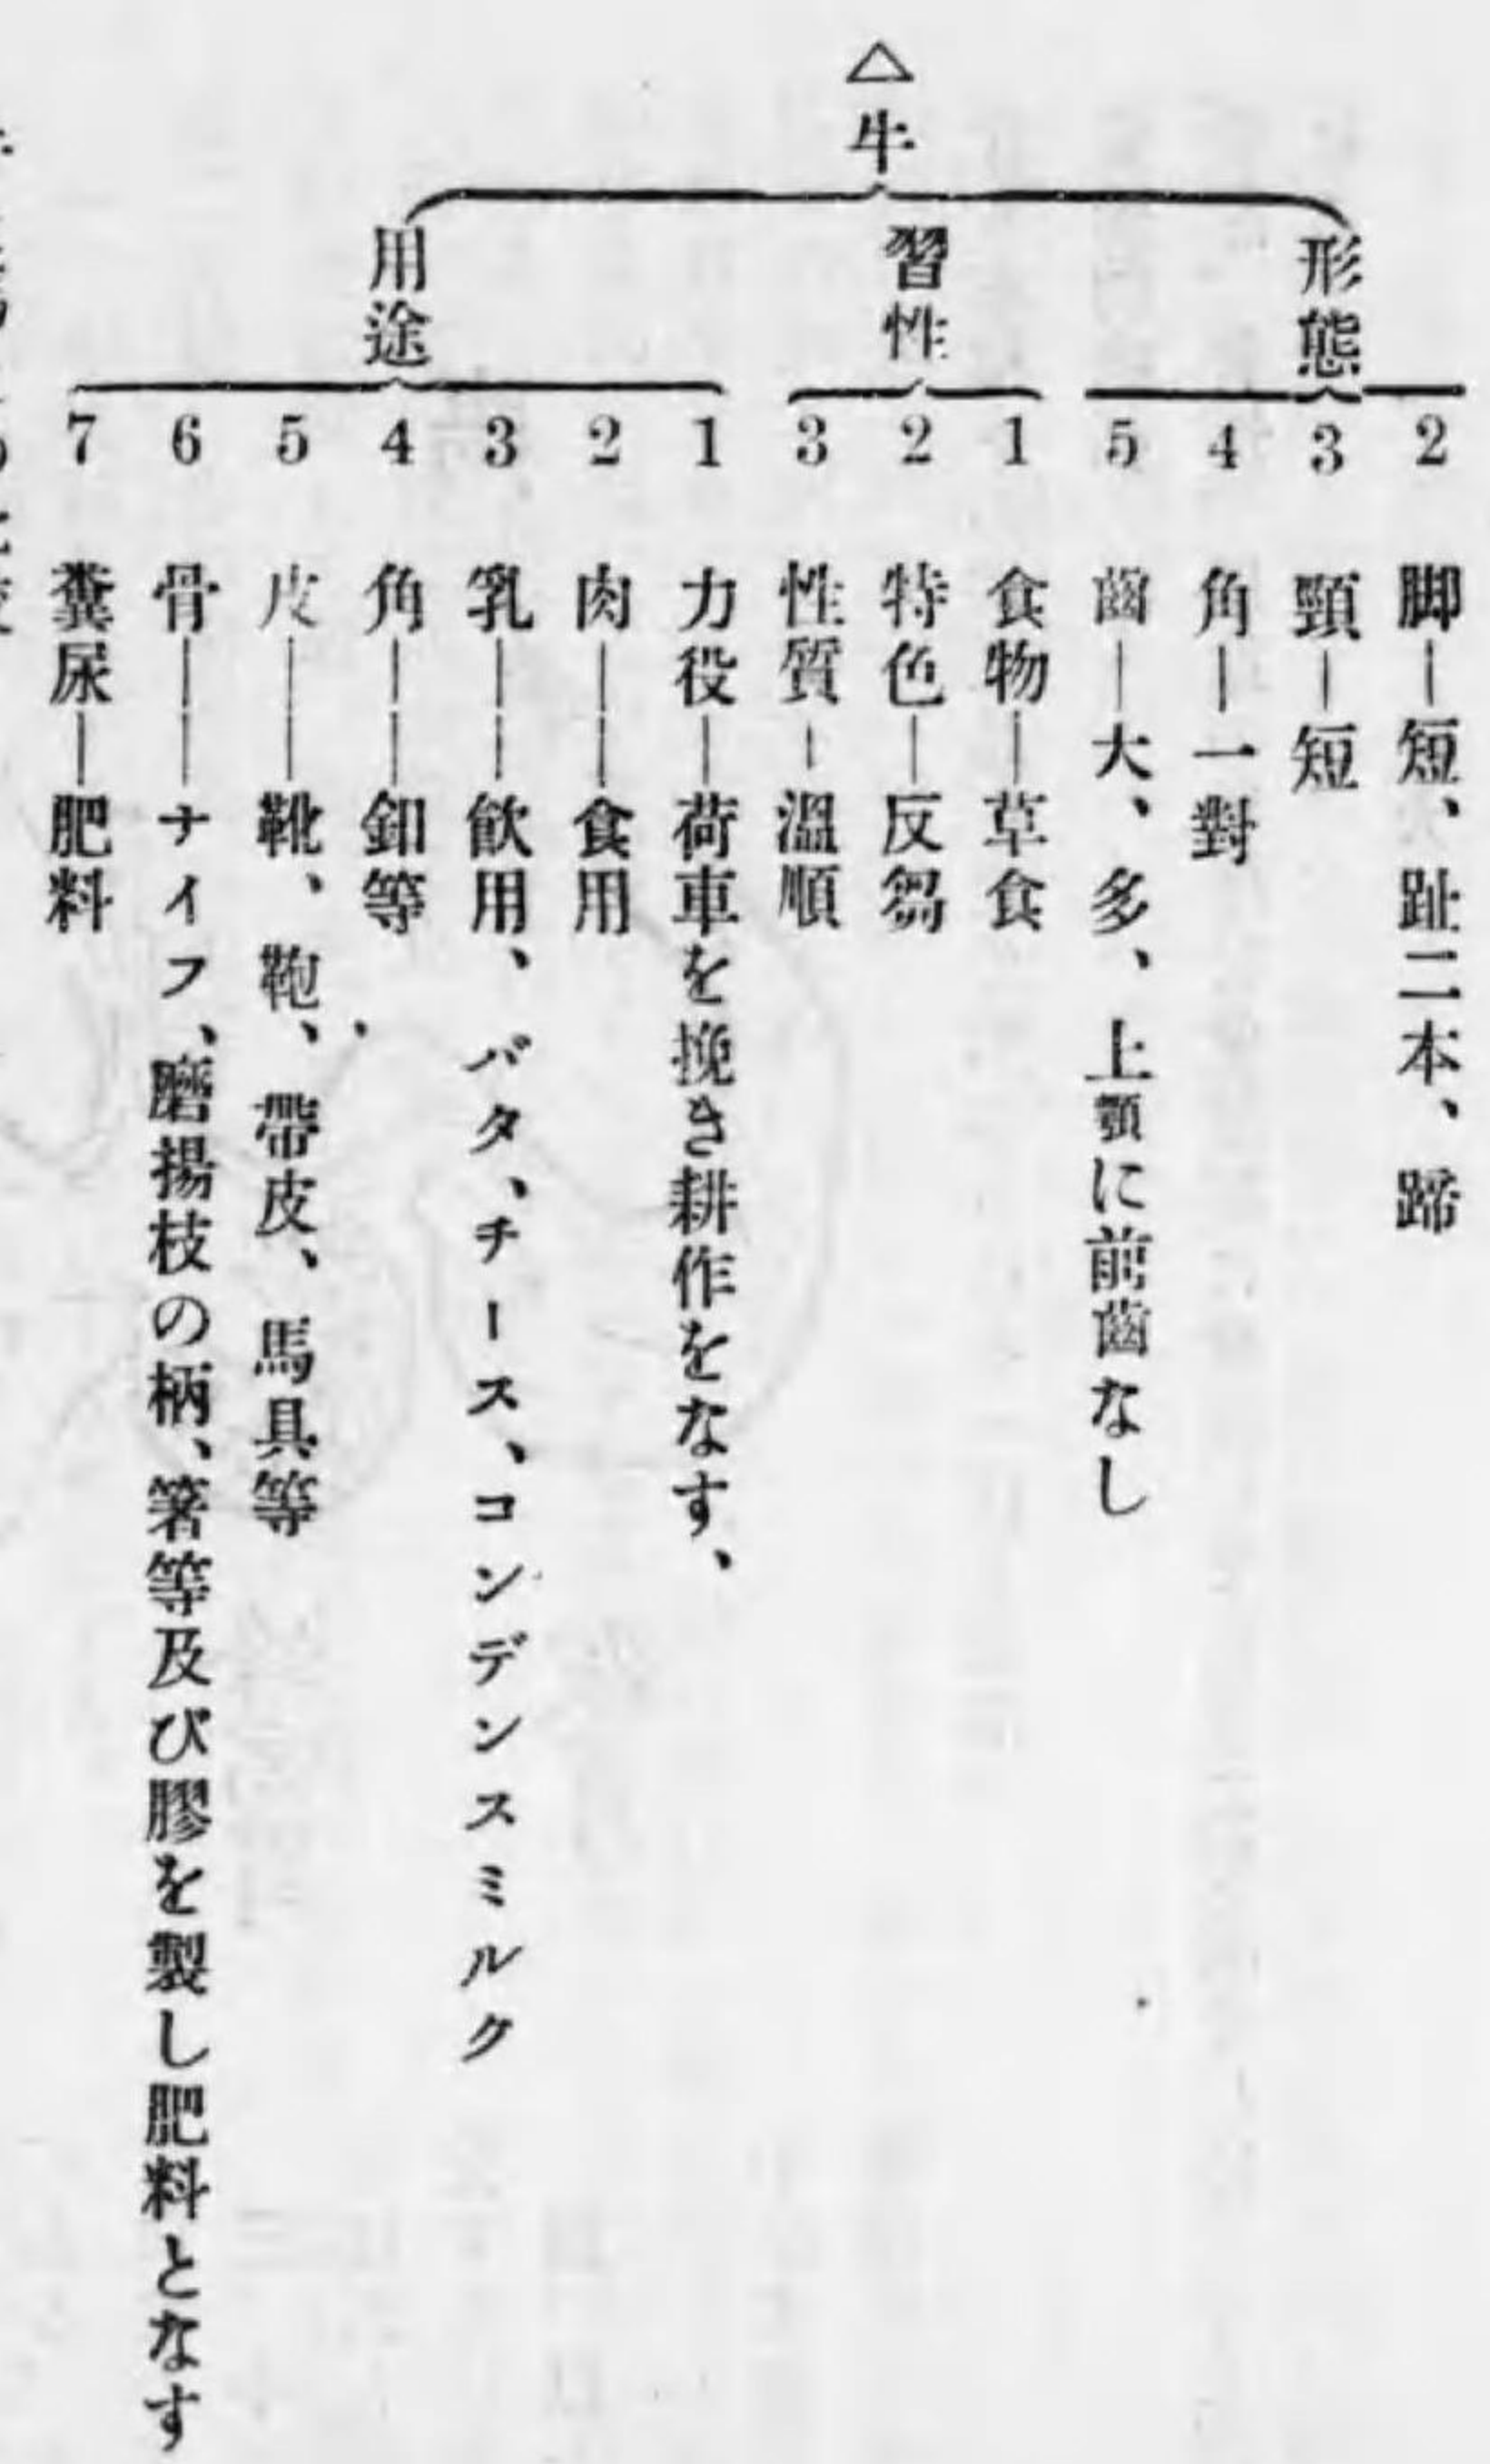 △牛
形態
2 脚―短、趾二本、蹄
3 頸―短
4 角―一對
5 齒―大、多、上顎に前齒なし
習性
1 食物―草食
2 特色―反芻
3 性質―溫順
用途
1 力役―荷車を挽き耕作をなす、
2 肉――食用
3 乳――飮用、バタ、チース、コンデンスミルク
4 角――釦等
5 皮――靴、鞄、帶皮、馬具等
6 骨――ナイフ、磨揚枝の柄、箸等及び膠を製し肥料となす
7 糞尿―肥料